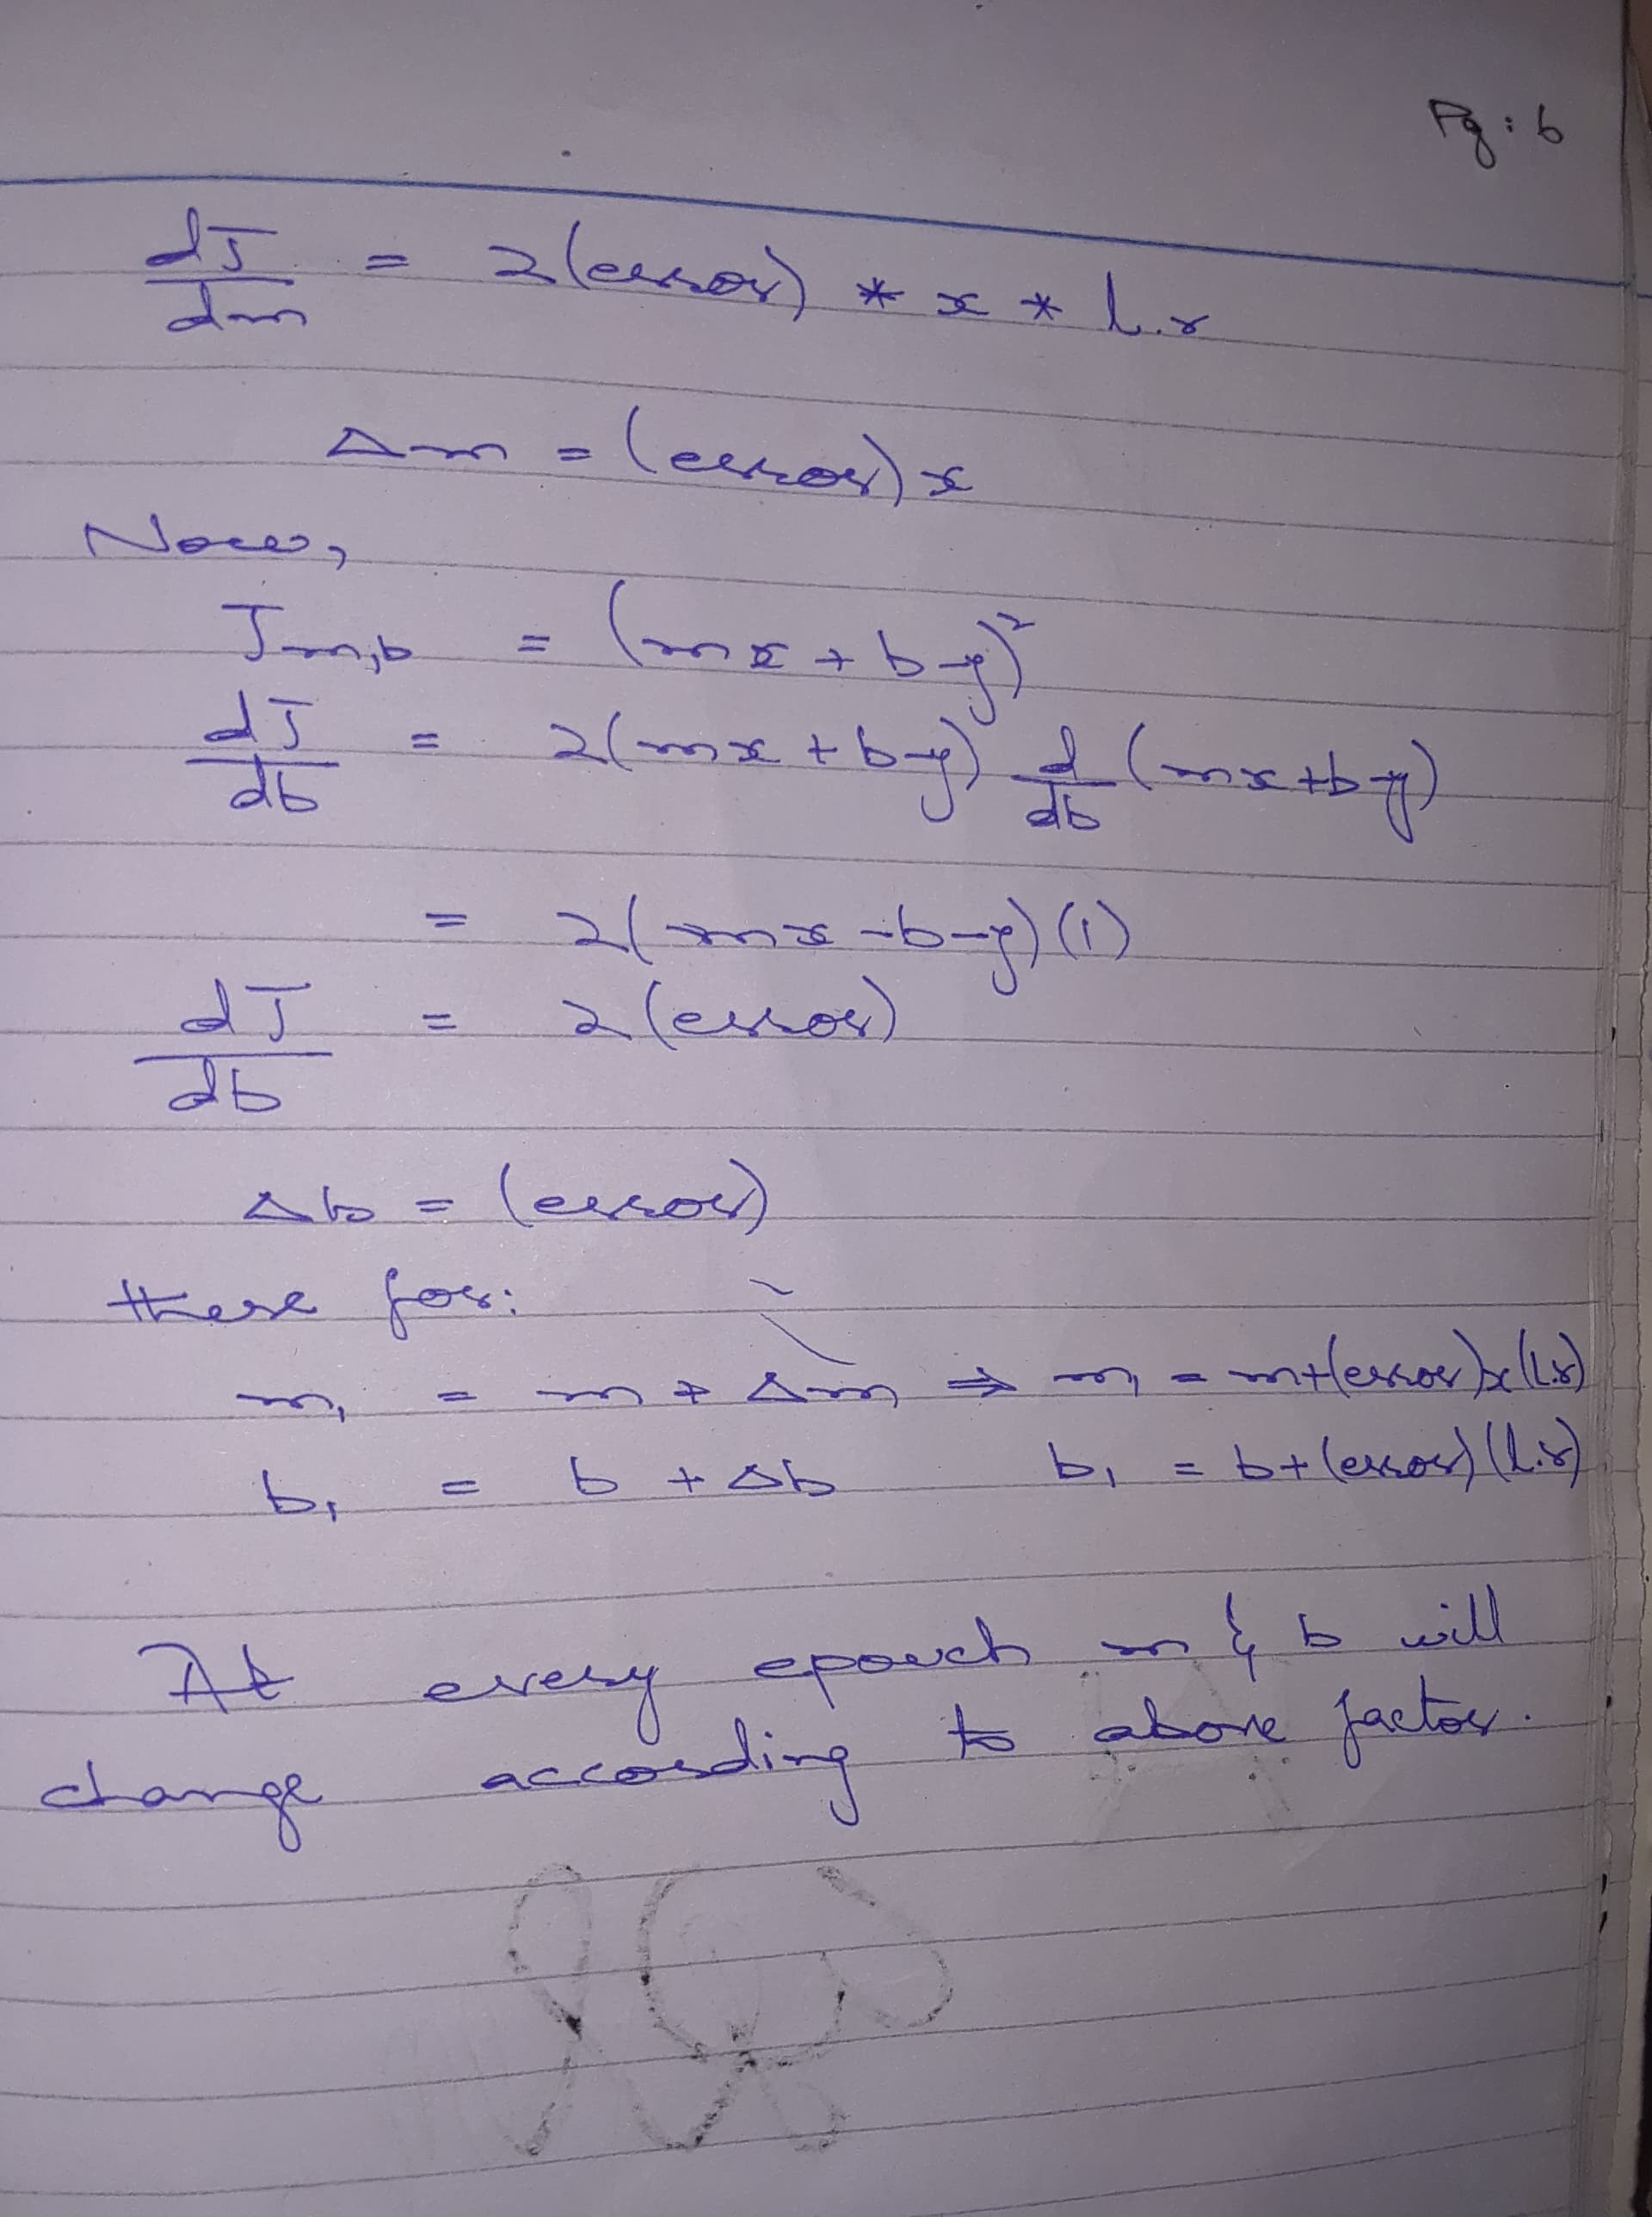 Pg: 6
dJ/dm = 2(error) * x * L.r
Δm = (error)x
Now,
Jm,b = (mx + b-y)²
dJ/db = 2(mx + b-y) d/db (mx+b-y)
= 2(mx-b-y)(1)
dJ/db = 2(error)
Δb = (error)
there for:
m₁ = m + Δm ⇒ m₁ = m+(error)x(L.r)
b₁ = b + Δb b₁ = b+(error)(L.r)
At every epouch m & b will
change according to above factor.